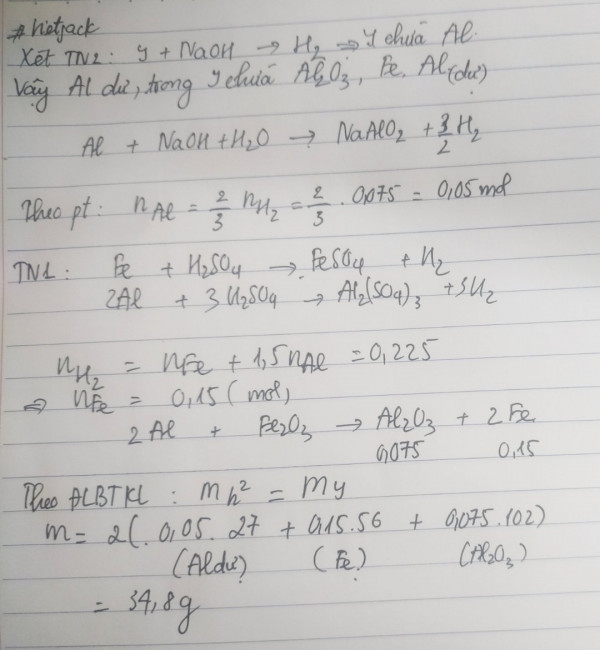 #hietjack
Xét TN2: Y + NaOH → H₂ ⇒ Y chứa Al.
Vậy Al dư, trong Y chứa Al₂O₃, Fe, Al(dư)
Al + NaOH + H₂O → NaAlO₂ + 3/2 H₂
Theo pt: nAl = 2/3 nH₂ = 2/3 . 0,075 = 0,05 mol
TN1: Fe + H₂SO₄ → FeSO₄ + H₂
2Al + 3H₂SO₄ → Al₂(SO₄)₃ + 3H₂
nH₂ = nFe + 1,5nAl = 0,225
⇒ nFe = 0,15 (mol)
2Al + Fe₂O₃ → Al₂O₃ + 2Fe
0,075 0,15
Theo ĐLBTKL : mh² = my
m = 2(. 0,05 . 27 + 0,15.56 + 0,075.102)
(Al dư) (Fe) (Al₂O₃)
= 34,8g